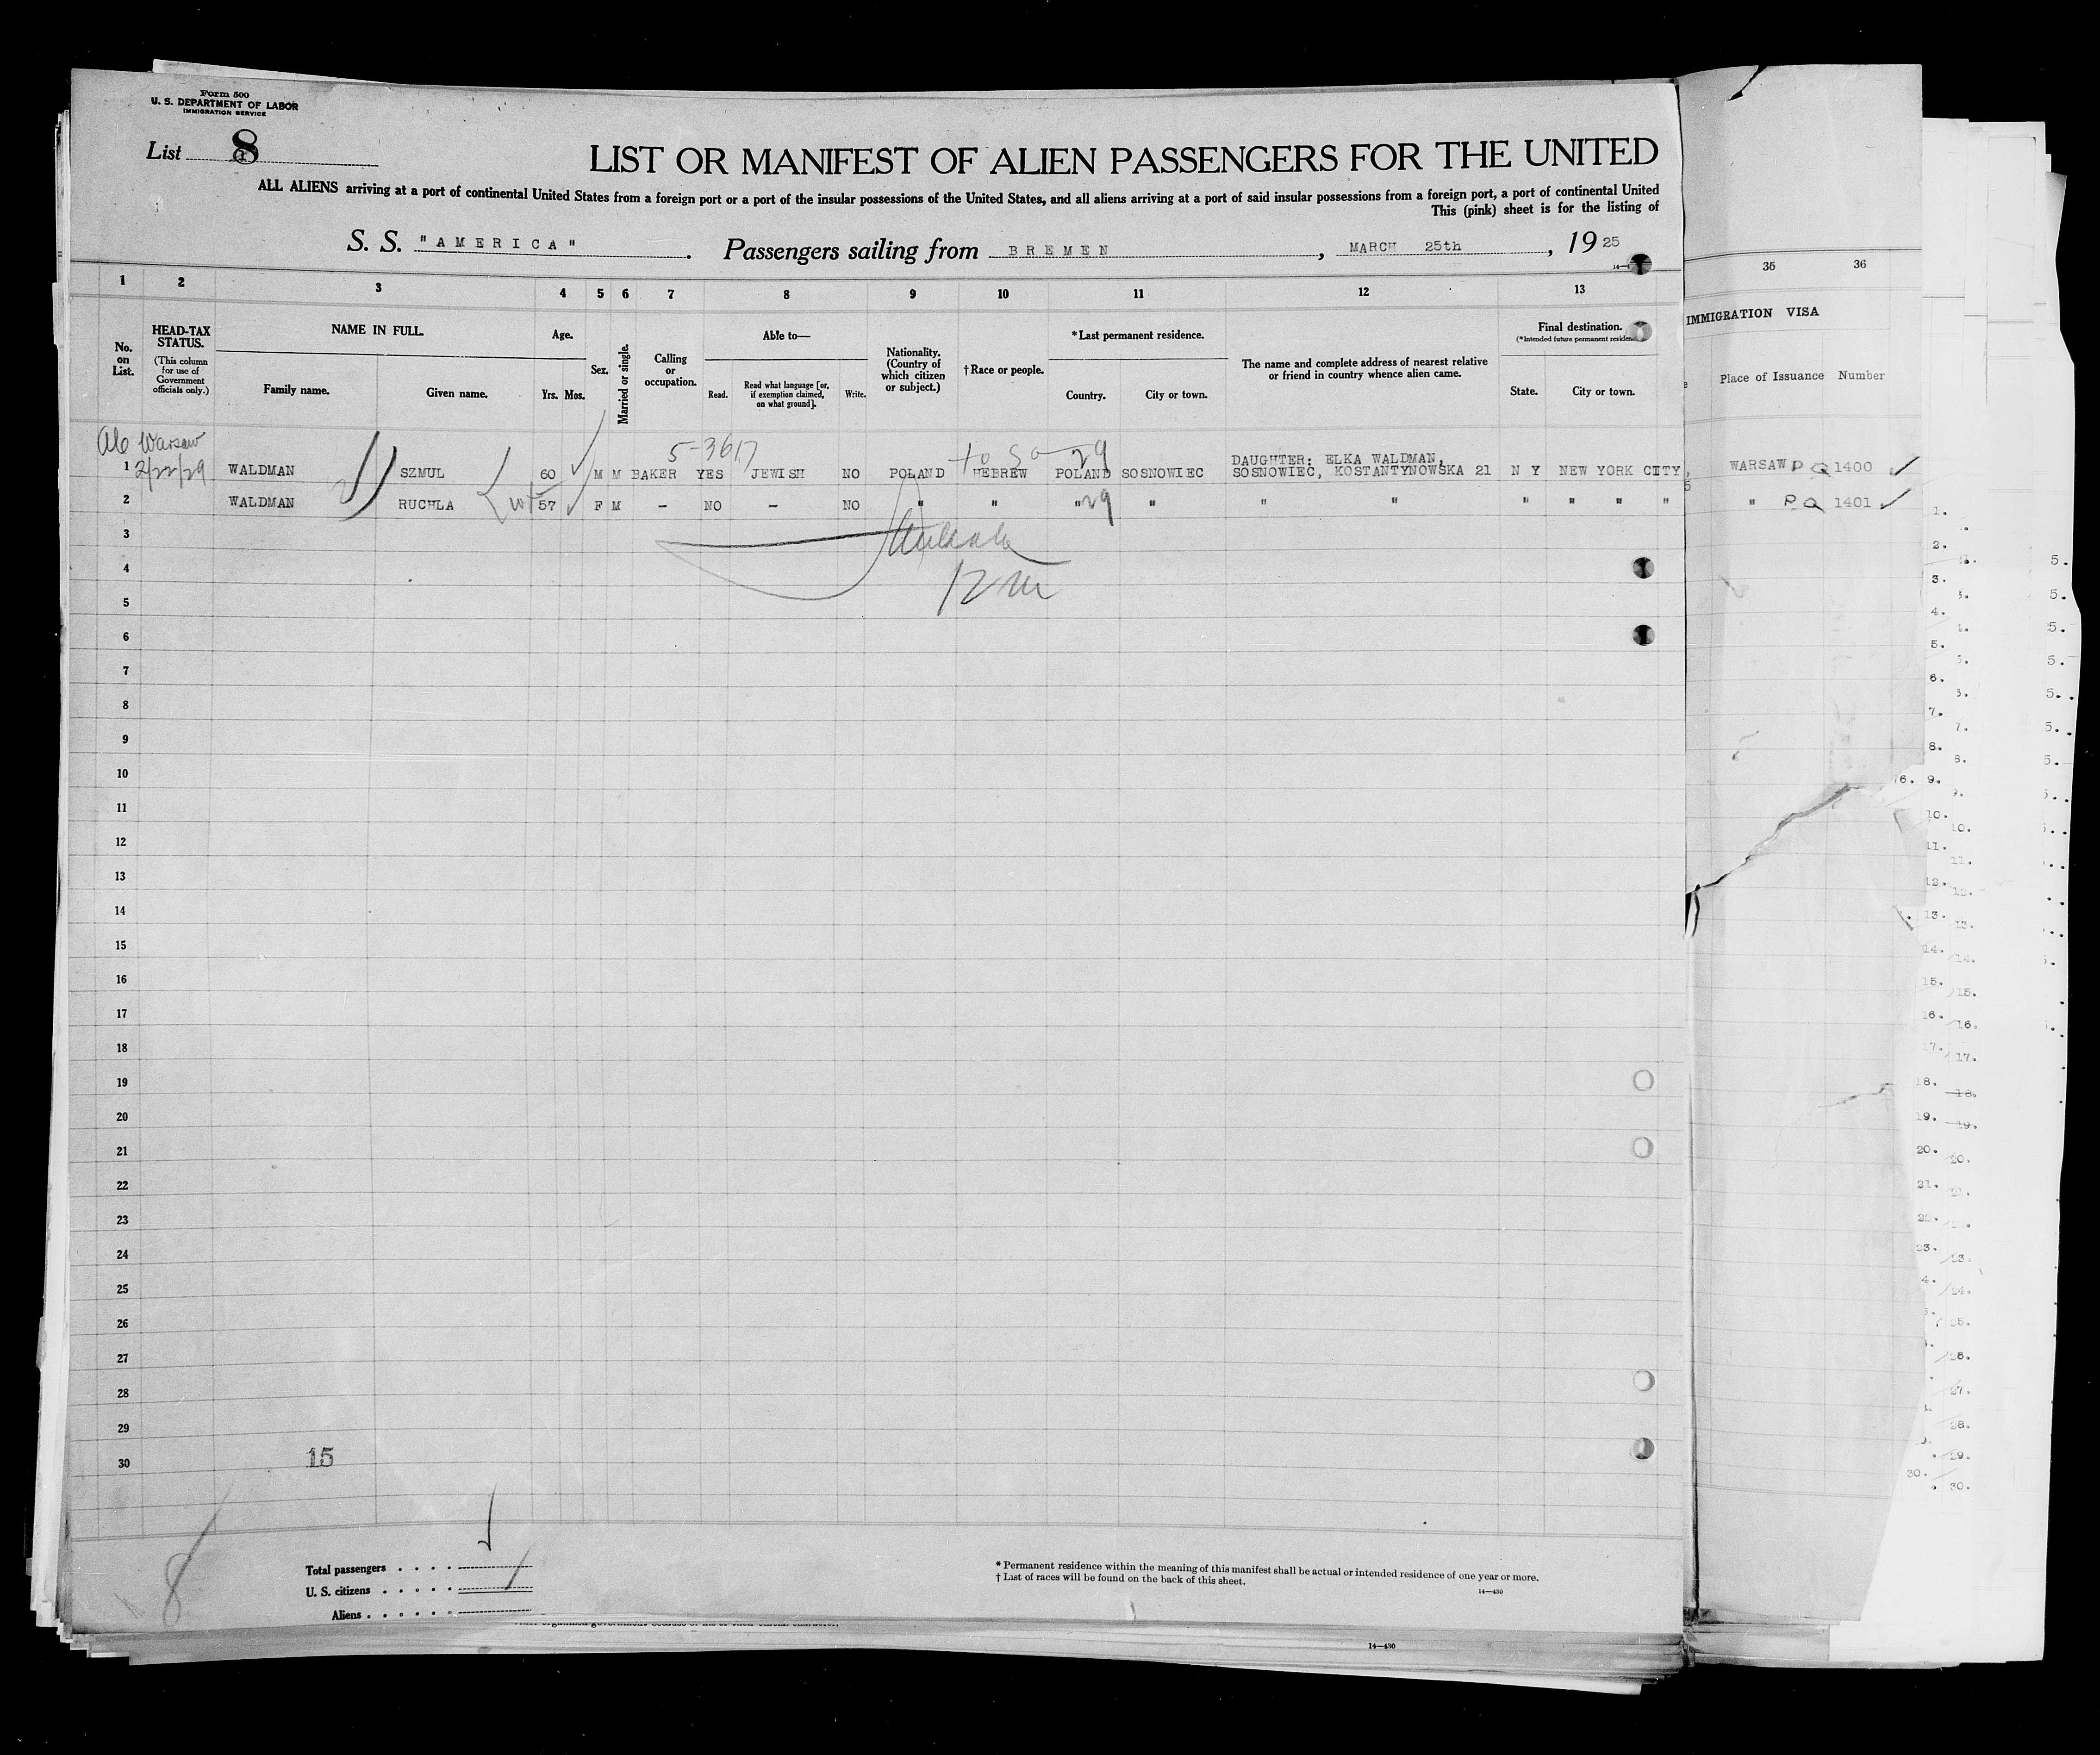 Form 500
U. S. DEPARTMENT OF LABOR
IMMIGRATION SERVICE
List 8
LIST OR MANIFEST OF ALIEN PASSENGERS FOR THE UNITED
ALL ALIENS arriving at a port of continental United States from a foreign port or a port of the insular possessions of the United States, and all aliens arriving at a port of said insular possessions from a foreign port, a port of continental United
This (pink) sheet is for the listing of
S. S. "AMERICA". Passengers sailing from BREMEN, MARCH 25th, 1925
1 2 3 4 5 6 7 8 9 10 11 12 13 35 36
No. on List.
HEAD-TAX STATUS.
(This column for use of Government officials only.)
NAME IN FULL.
Family name. Given name.
Age.
Yrs. Mos.
Sex.
Married or single.
Calling or occupation.
Able to—
Read. Read what language [or, if exemption claimed, on what ground]. Write.
Nationality. (Country of which citizen or subject.)
†Race or people.
*Last permanent residence.
Country. City or town.
The name and complete address of nearest relative or friend in country whence alien came.
Final destination.
(*Intended future permanent residence
State. City or town.
IMMIGRATION VISA
Place of Issuance Number
Warsaw 5-3617 29
DAUGHTER: ELKA WALDMAN,
1 2/22/29 WALDMAN SZMUL 60 M M BAKER YES JEWISH NO POLAND HEBREW POLAND SOSNOWIEC SOSNOWIEC, KOSTANTYNOWSKA 21 N Y NEW YORK CITY, WARSAW P Q 1400
2 WALDMAN RUCHLA wf 57 F M - NO - NO " " " 29 " " " " " " " " P Q 1401
3
4
5
6
7
8
9
10
11
12
13
14
15
16
17
18
19
20
21
22
23
24
25
26
27
28
29
30
15
8
Total passengers
U. S. citizens
Aliens
* Permanent residence within the meaning of this manifest shall be actual or intended residence of one year or more.
† List of races will be found on the back of this sheet.
14—430
14—430